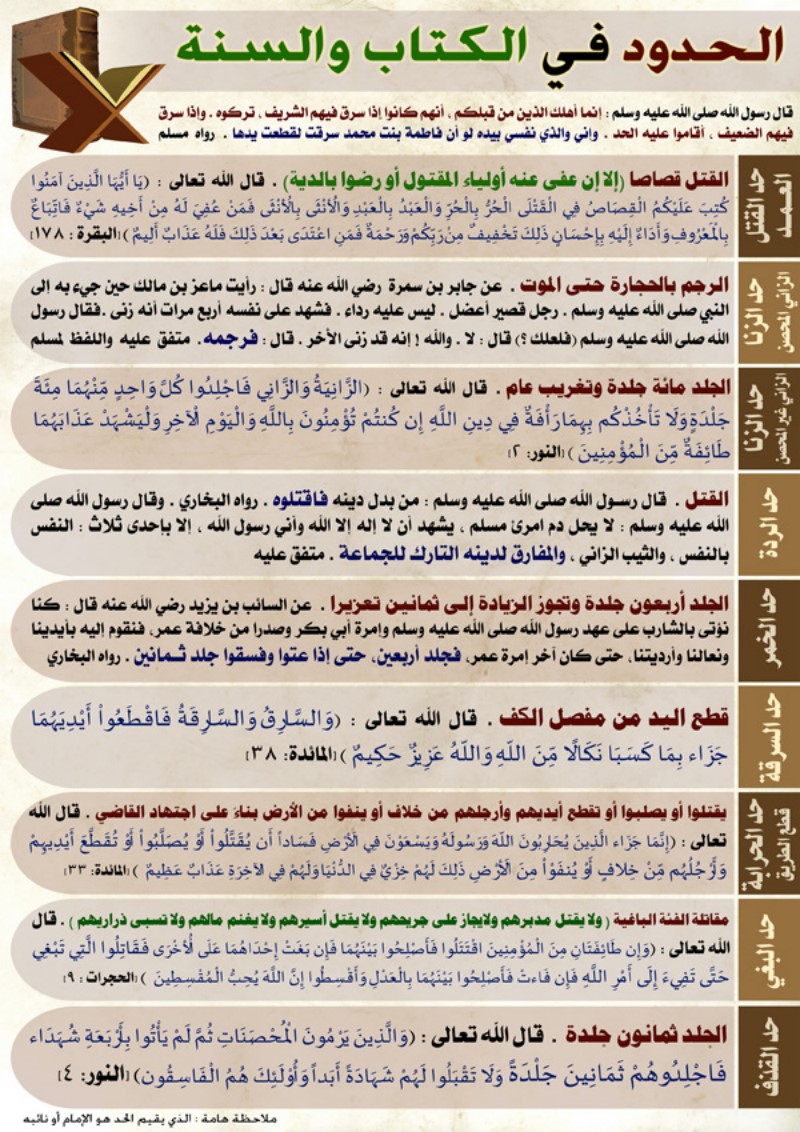 الحدود في الكتاب والسنة
قال رسول الله صلى الله عليه وسلم : إنما أهلك الذين من قبلكم ، أنهم كانوا إذا سرق فيهم الشريف ، تركوه . وإذا سرق
فيهم الضعيف ، أقاموا عليه الحد . وإني والذي نفسي بيده لو أن فاطمة بنت محمد سرقت لقطعت يدها . رواه مسلم
حد القتل
العمد
القتل قصاصا (إلا إن عفى عنه أولياء المقتول أو رضوا بالدية) . قال الله تعالى : (يَا أَيُّهَا الَّذِينَ آمَنُوا
كُتِبَ عَلَيْكُمُ الْقِصَاصُ فِي الْقَتْلَى الْحُرُّ بِالْحُرِّ وَالْعَبْدُ بِالْعَبْدِ وَالْأُنْثَى بِالْأُنْثَى فَمَنْ عُفِيَ لَهُ مِنْ أَخِيهِ شَيْءٌ فَاتِّبَاعٌ
بِالْمَعْرُوفِ وَأَدَاءٌ إِلَيْهِ بِإِحْسَانٍ ذَلِكَ تَخْفِيفٌ مِنْ رَبِّكُمْ وَرَحْمَةٌ فَمَنِ اعْتَدَى بَعْدَ ذَلِكَ فَلَهُ عَذَابٌ أَلِيمٌ ) [البقرة : ١٧٨]
الزاني المحصن
حد الزنا
الرجم بالحجارة حتى الموت . عن جابر بن سمرة رضي الله عنه قال : رأيت ماعز بن مالك حين جيء به إلى
النبي صلى الله عليه وسلم . رجل قصير أعضل . ليس عليه رداء . فشهد على نفسه أربع مرات أنه زنى . فقال رسول
الله صلى الله عليه وسلم (فلعلك ؟) قال : لا . والله ! إنه قد زنى الأخر . قال : فرجمه . متفق عليه واللفظ لمسلم
الزاني غير المحصن
حد الزنا
الجلد مائة جلدة وتغريب عام . قال الله تعالى : (الزَّانِيَةُ وَالزَّانِي فَاجْلِدُوا كُلَّ وَاحِدٍ مِّنْهُمَا مِئَةَ
جَلْدَةٍ وَلَا تَأْخُذْكُم بِهِمَا رَأْفَةٌ فِي دِينِ اللَّهِ إِن كُنتُمْ تُؤْمِنُونَ بِاللَّهِ وَالْيَوْمِ الْآخِرِ وَلْيَشْهَدْ عَذَابَهُمَا
طَائِفَةٌ مِّنَ الْمُؤْمِنِينَ ) [النور: ٢]
حد الردة
القتل . قال رسول الله صلى الله عليه وسلم : من بدل دينه فاقتلوه . رواه البخاري . وقال رسول الله صلى
الله عليه وسلم : لا يحل دم امرئ مسلم ، يشهد أن لا إله إلا الله وأني رسول الله ، إلا بإحدى ثلاث : النفس
بالنفس ، والثيب الزاني ، والمفارق لدينه التارك للجماعة . متفق عليه
حد الخمر
الجلد أربعون جلدة وتجوز الزيادة إلى ثمانين تعزيرا . عن السائب بن يزيد رضي الله عنه قال : كنا
نؤتى بالشارب على عهد رسول الله صلى الله عليه وسلم وإمرة أبي بكر وصدرا من خلافة عمر، فنقوم إليه بأيدينا
ونعالنا وأرديتنا، حتى كان آخر إمرة عمر، فجلد أربعين، حتى إذا عتوا وفسقوا جلد ثمانين . رواه البخاري
حد السرقة
قطع اليد من مفصل الكف . قال الله تعالى : (وَالسَّارِقُ وَالسَّارِقَةُ فَاقْطَعُواْ أَيْدِيَهُمَا
جَزَاء بِمَا كَسَبَا نَكَالًا مِّنَ اللّهِ وَاللّهُ عَزِيزٌ حَكِيمٌ ) [المائدة: ٣٨]
حد الحرابة
قطع الطريق
يقتلوا أو يصلبوا أو تقطع أيديهم وأرجلهم من خلاف أو ينفوا من الأرض بناءً على اجتهاد القاضي . قال الله
تعالى : (إِنَّمَا جَزَاء الَّذِينَ يُحَارِبُونَ اللّهَ وَرَسُولَهُ وَيَسْعَوْنَ فِي الأَرْضِ فَسَاداً أَن يُقَتَّلُواْ أَوْ يُصَلَّبُواْ أَوْ تُقَطَّعَ أَيْدِيهِمْ
وَأَرْجُلُهُم مِّنْ خِلافٍ أَوْ يُنفَوْاْ مِنَ الأَرْضِ ذَلِكَ لَهُمْ خِزْيٌ فِي الدُّنْيَا وَلَهُمْ فِي الآخِرَةِ عَذَابٌ عَظِيمٌ ) [المائدة: ٣٣]
حد البغي
مقاتلة الفئة الباغية ( ولا يقتل مدبرهم ولايجاز على جريحهم ولا يقتل أسيرهم ولا يغنم مالهم ولا تسبى ذراريهم ) . قال
الله تعالى : (وَإِن طَائِفَتَانِ مِنَ الْمُؤْمِنِينَ اقْتَتَلُوا فَأَصْلِحُوا بَيْنَهُمَا فَإِن بَغَتْ إِحْدَاهُمَا عَلَى الْأُخْرَى فَقَاتِلُوا الَّتِي تَبْغِي
حَتَّى تَفِيءَ إِلَى أَمْرِ اللَّهِ فَإِن فَاءتْ فَأَصْلِحُوا بَيْنَهُمَا بِالْعَدْلِ وَأَقْسِطُوا إِنَّ اللَّهَ يُحِبُّ الْمُقْسِطِينَ ) [الحجرات : ٩]
حد القذف
الجلد ثمانون جلدة . قال الله تعالى : (وَالَّذِينَ يَرْمُونَ الْمُحْصَنَاتِ ثُمَّ لَمْ يَأْتُوا بِأَرْبَعَةِ شُهَدَاء
فَاجْلِدُوهُمْ ثَمَانِينَ جَلْدَةً وَلَا تَقْبَلُوا لَهُمْ شَهَادَةً أَبَداً وَأُوْلَئِكَ هُمُ الْفَاسِقُون) [النور: ٤]
ملاحظة هامة : الذي يقيم الحد هو الإمام أو نائبه